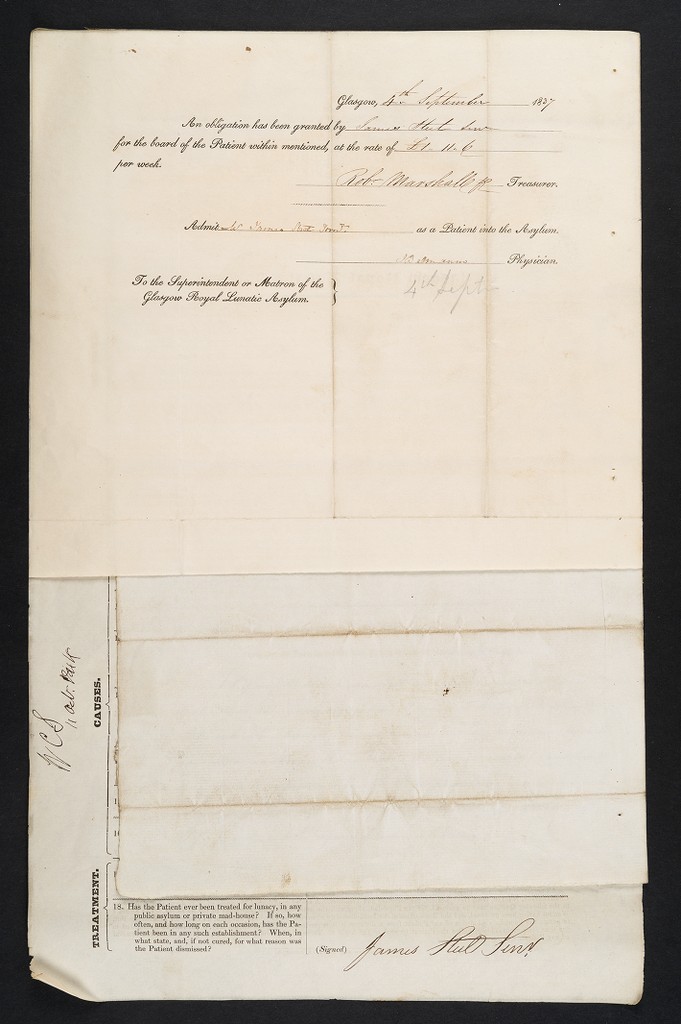 Glasgow, 4th September 1837
An obligation has been granted by James Steel Senr
for the board of the Patient within mentioned, at the rate of £1 11.6
per week.
Robt Marshall Treasurer.
Admit James as a Patient into the Asylum.
Physician.
To the Superintendent or Matron of the
Glasgow Royal Lunatic Asylum.
4th Sept
CAUSES.
TREATMENT.
18. Has the Patient ever been treated for lunacy, in any
public asylum or private mad-house? If so, how
often, and how long on each occasion, has the Pa-
tient been in any such establishment? When, in
what state, and, if not cured, for what reason was
the Patient dismissed?
(Signed) James Steel Senr